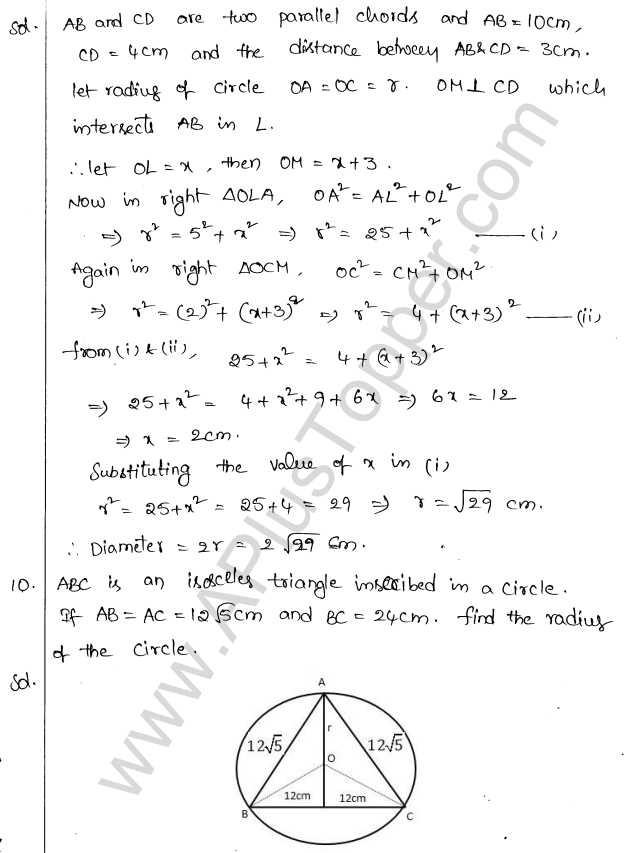 Sol. AB and CD are two parallel chords and AB = 10cm,
CD = 4cm and the distance between AB & CD = 3cm.
let radius of circle OA = OC = r. OM ⊥ CD which
intersects AB in L.
∴ let OL = x, then OM = x+3.
Now in right ΔOLA, OA² = AL² + OL²
⇒ r² = 5² + x² ⇒ r² = 25 + x² —— (i)
Again in right ΔOCM, OC² = CM² + OM²
⇒ r² = (2)² + (x+3)² ⇒ r² = 4 + (x+3)² —— (ii)
from (i) & (ii), 25 + x² = 4 + (x+3)²
⇒ 25 + x² = 4 + x² + 9 + 6x ⇒ 6x = 12
⇒ x = 2cm.
Substituting the value of x in (i)
r² = 25 + x² = 25 + 4 = 29 ⇒ r = √29 cm.
∴ Diameter = 2r = 2√29 cm.
10. ABC is an isosceles triangle inscribed in a circle.
If AB = AC = 12√5cm and BC = 24cm. find the radius
of the circle.
Sol.
A
r
12√5 12√5
O
12cm 12cm
B C
www.APlusTopper.com